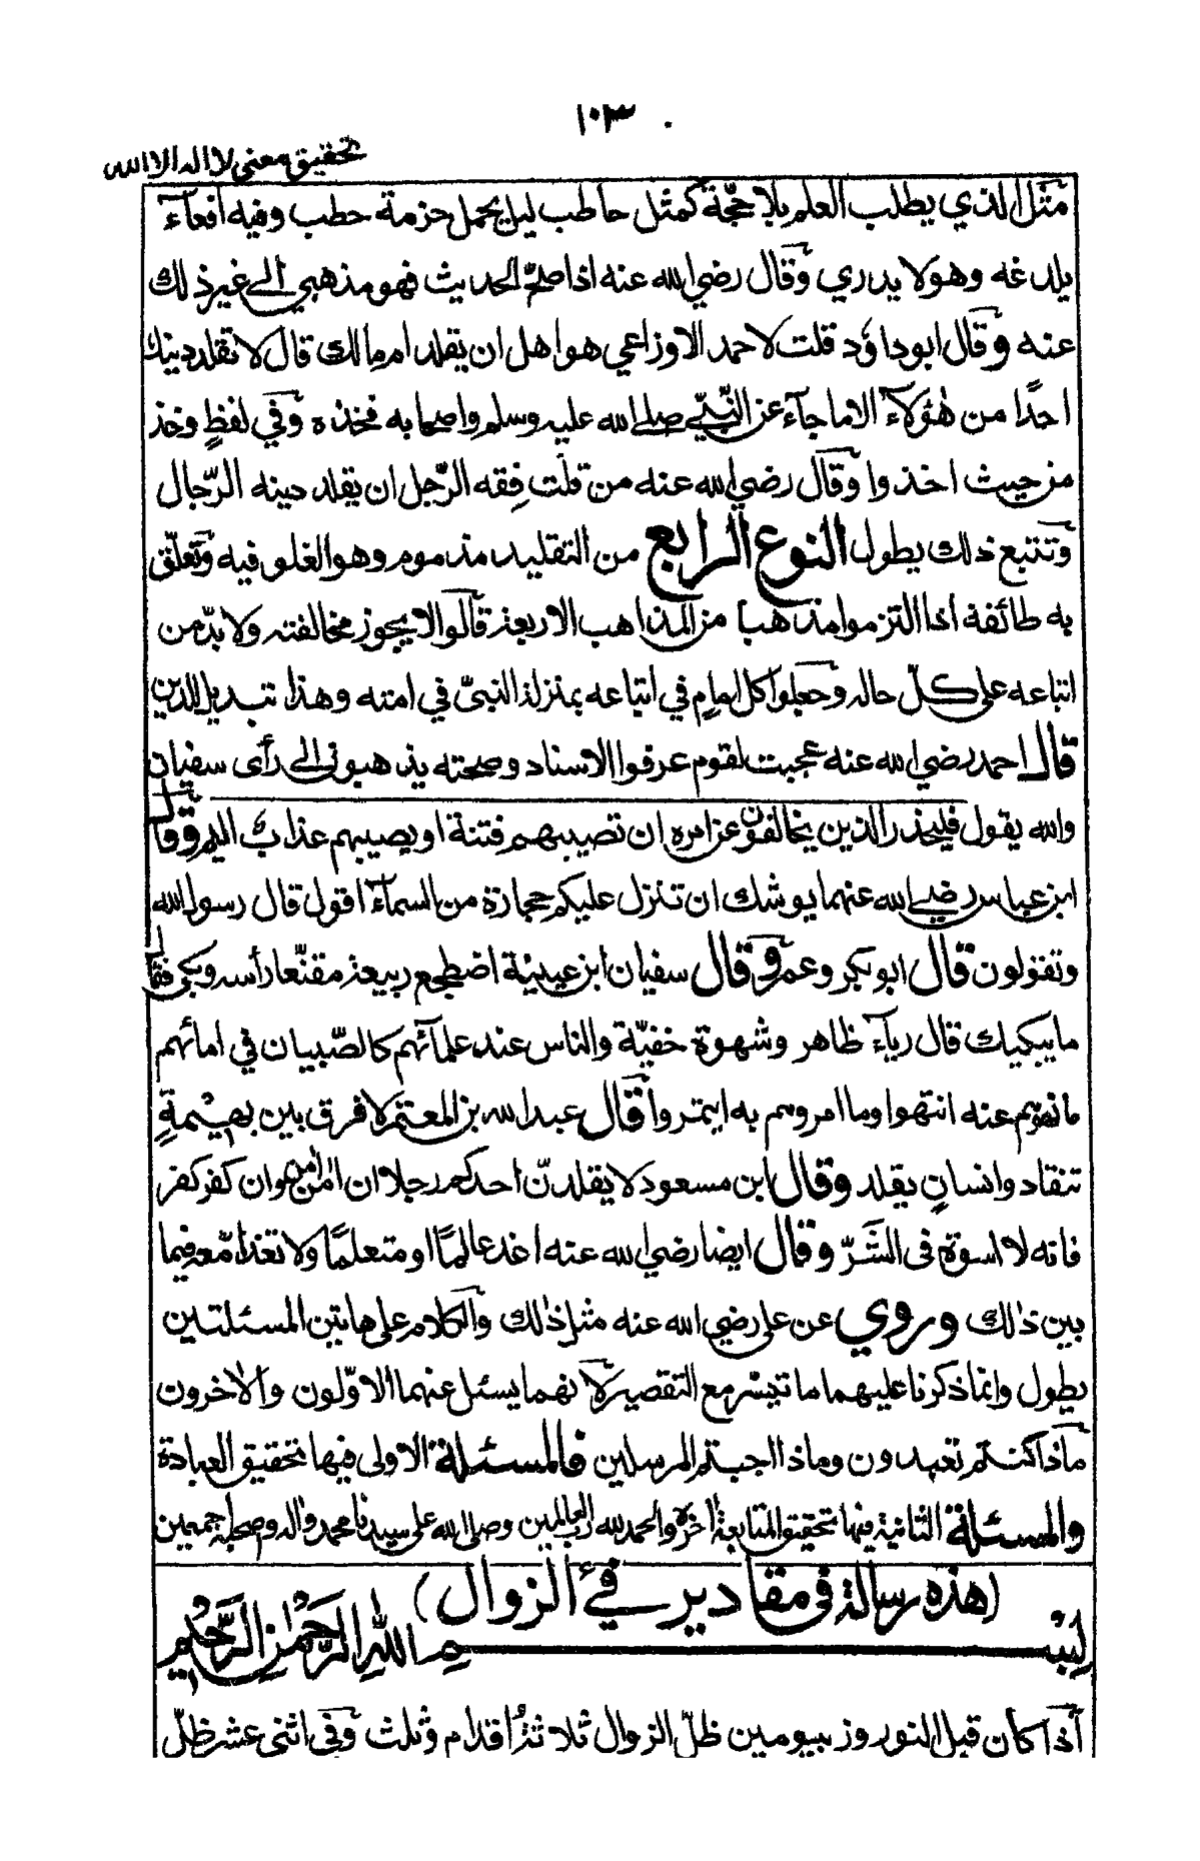 ١٠٣
تحقيق معنى لا اله الا الله
مثل الذي يطلب العلم بلا حجّة كمثل حاطب ليل يحمل حزمة حطب وفيه افعاء
يلدغه وهو لا يدري وقال رضي الله عنه اذا صحّ الحديث فهو مذهبي الى غير ذلك
عنه وقال ابو داؤد قلت لاحمد الاوزاعي هو اهل ان يقلد ام مالك قال لا تقلد دينك
احدًا من هٰؤلاء الا ما جاء عن النّبيّ صلى الله عليه وسلم واصحابه فخذه وفي لفظٍ وخذ
من حيث اخذوا وقال رضي الله عنه من قلّت فِقه الرّجل ان يقلد دينه الرّجال
وتتبع ذلك يطول النوع الرابع من التقليد مذموم وهو الغلو فيه وتعلّق
به طائفة اذا التزموا مذهبا من المذاهب الاربعة قالوا لا يجوز مخالفته ولا بدّ من
اتباعه على كلّ حاله وجعلوا كل امامٍ في اتباعه بمنزلة النبيّ في امته وهذا تبديل للدين
قال احمد رضي الله عنه عجبت لقوم عرفوا الاسناد وصحته يذهبون الى رأى سفيان
والله يقول فليحذر الذين يخالفون عن امره ان تصيبهم فتنة او يصيبهم عذاب اليم وقال
ابن عباس رضي الله عنهما يوشك ان تنزل عليكم حجارة من السماء اقول قال رسول الله
وتقولون قال ابو بكر وعمر وقال سفيان ابن عيينة اضطجع ربيعة مقنّعا رأسه وبكى فقال
ما يبكيك قال رياء ظاهر وشهوة خفيّة والناس عند علمائهم كالصّبيان في امائهم
ما نهوهم عنه انتهوا وما امروهم به ايتمروا قال عبد الله بن المعتمر لا فرق بين بهيمةٍ
تنقاد وانسانٍ يقلد وقال ابن مسعود لا يقلدنّ احدكم رجلا ان اٰمن اٰمن وان كفر كفر
فانه لا اسوة في الشَّرّ وقال ايضا رضي الله عنه اغد عالمًا او متعلمًا ولا تغد امّعه فيما
بين ذٰلك وروي عن على رضي الله عنه مثل ذٰلك والكلام على هاتين المسئلتين
يطول وانما ذكرنا عليهما ما تيسّر مع التقصير لانهما يسئل عنهما الاوّلون والاٰخرون
ماذا كنتم تعبدون وماذا اجبتم المرسلين فالمسئلة الاولى فيها تحقيق العبادة
والمسئلة الثانية فيها تحقيق المتابعة اٰخره والحمد لله رب العالمين وصلى الله على سيدنا محمد واٰله وصحبه اجمعين
(هذه رسالة في مقادير فيئ الزوال)
بِسْمِ اللهِ الرَّحْمٰنِ الرَّحِيْمِ
اذا كان قبل النوروز بيومين ظلّ الزوال ثلاثة اقدام وثلث وفي اثنى عشر ظلّ